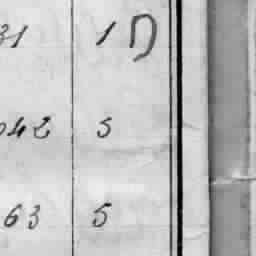 31 1
042 5
63 5